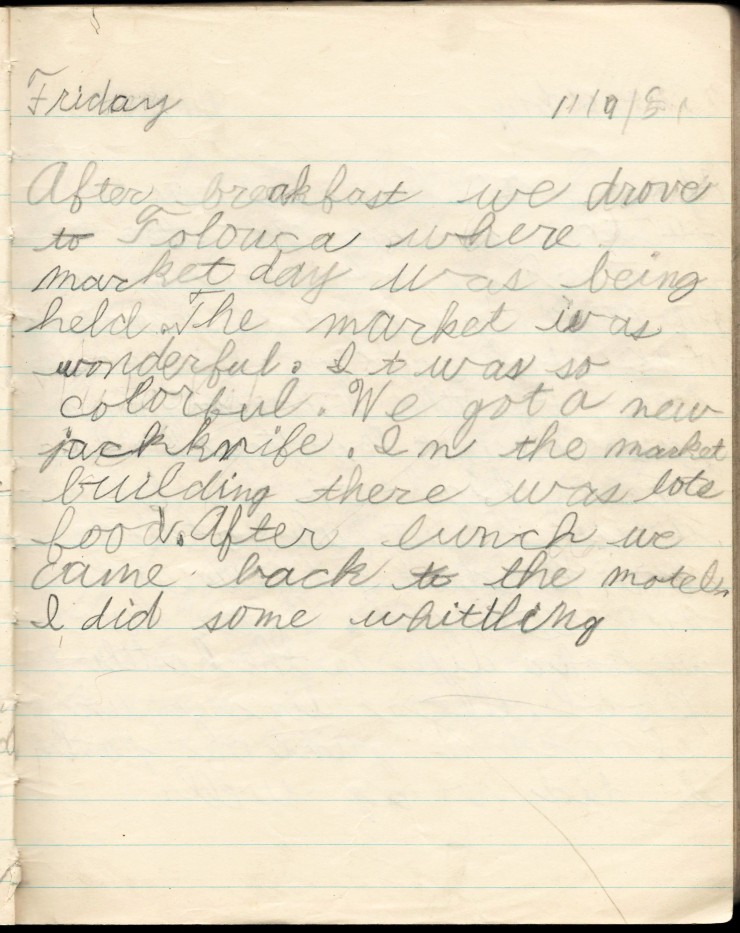 Friday 11/9/51
After breakfast we drove
to Tolouca where
market day was being
held. The market was
wonderful. It was so
colorful. We got a new
jackknife. In the market
building there was lots
food. After lunch we
came back to the motel.
I did some whittling